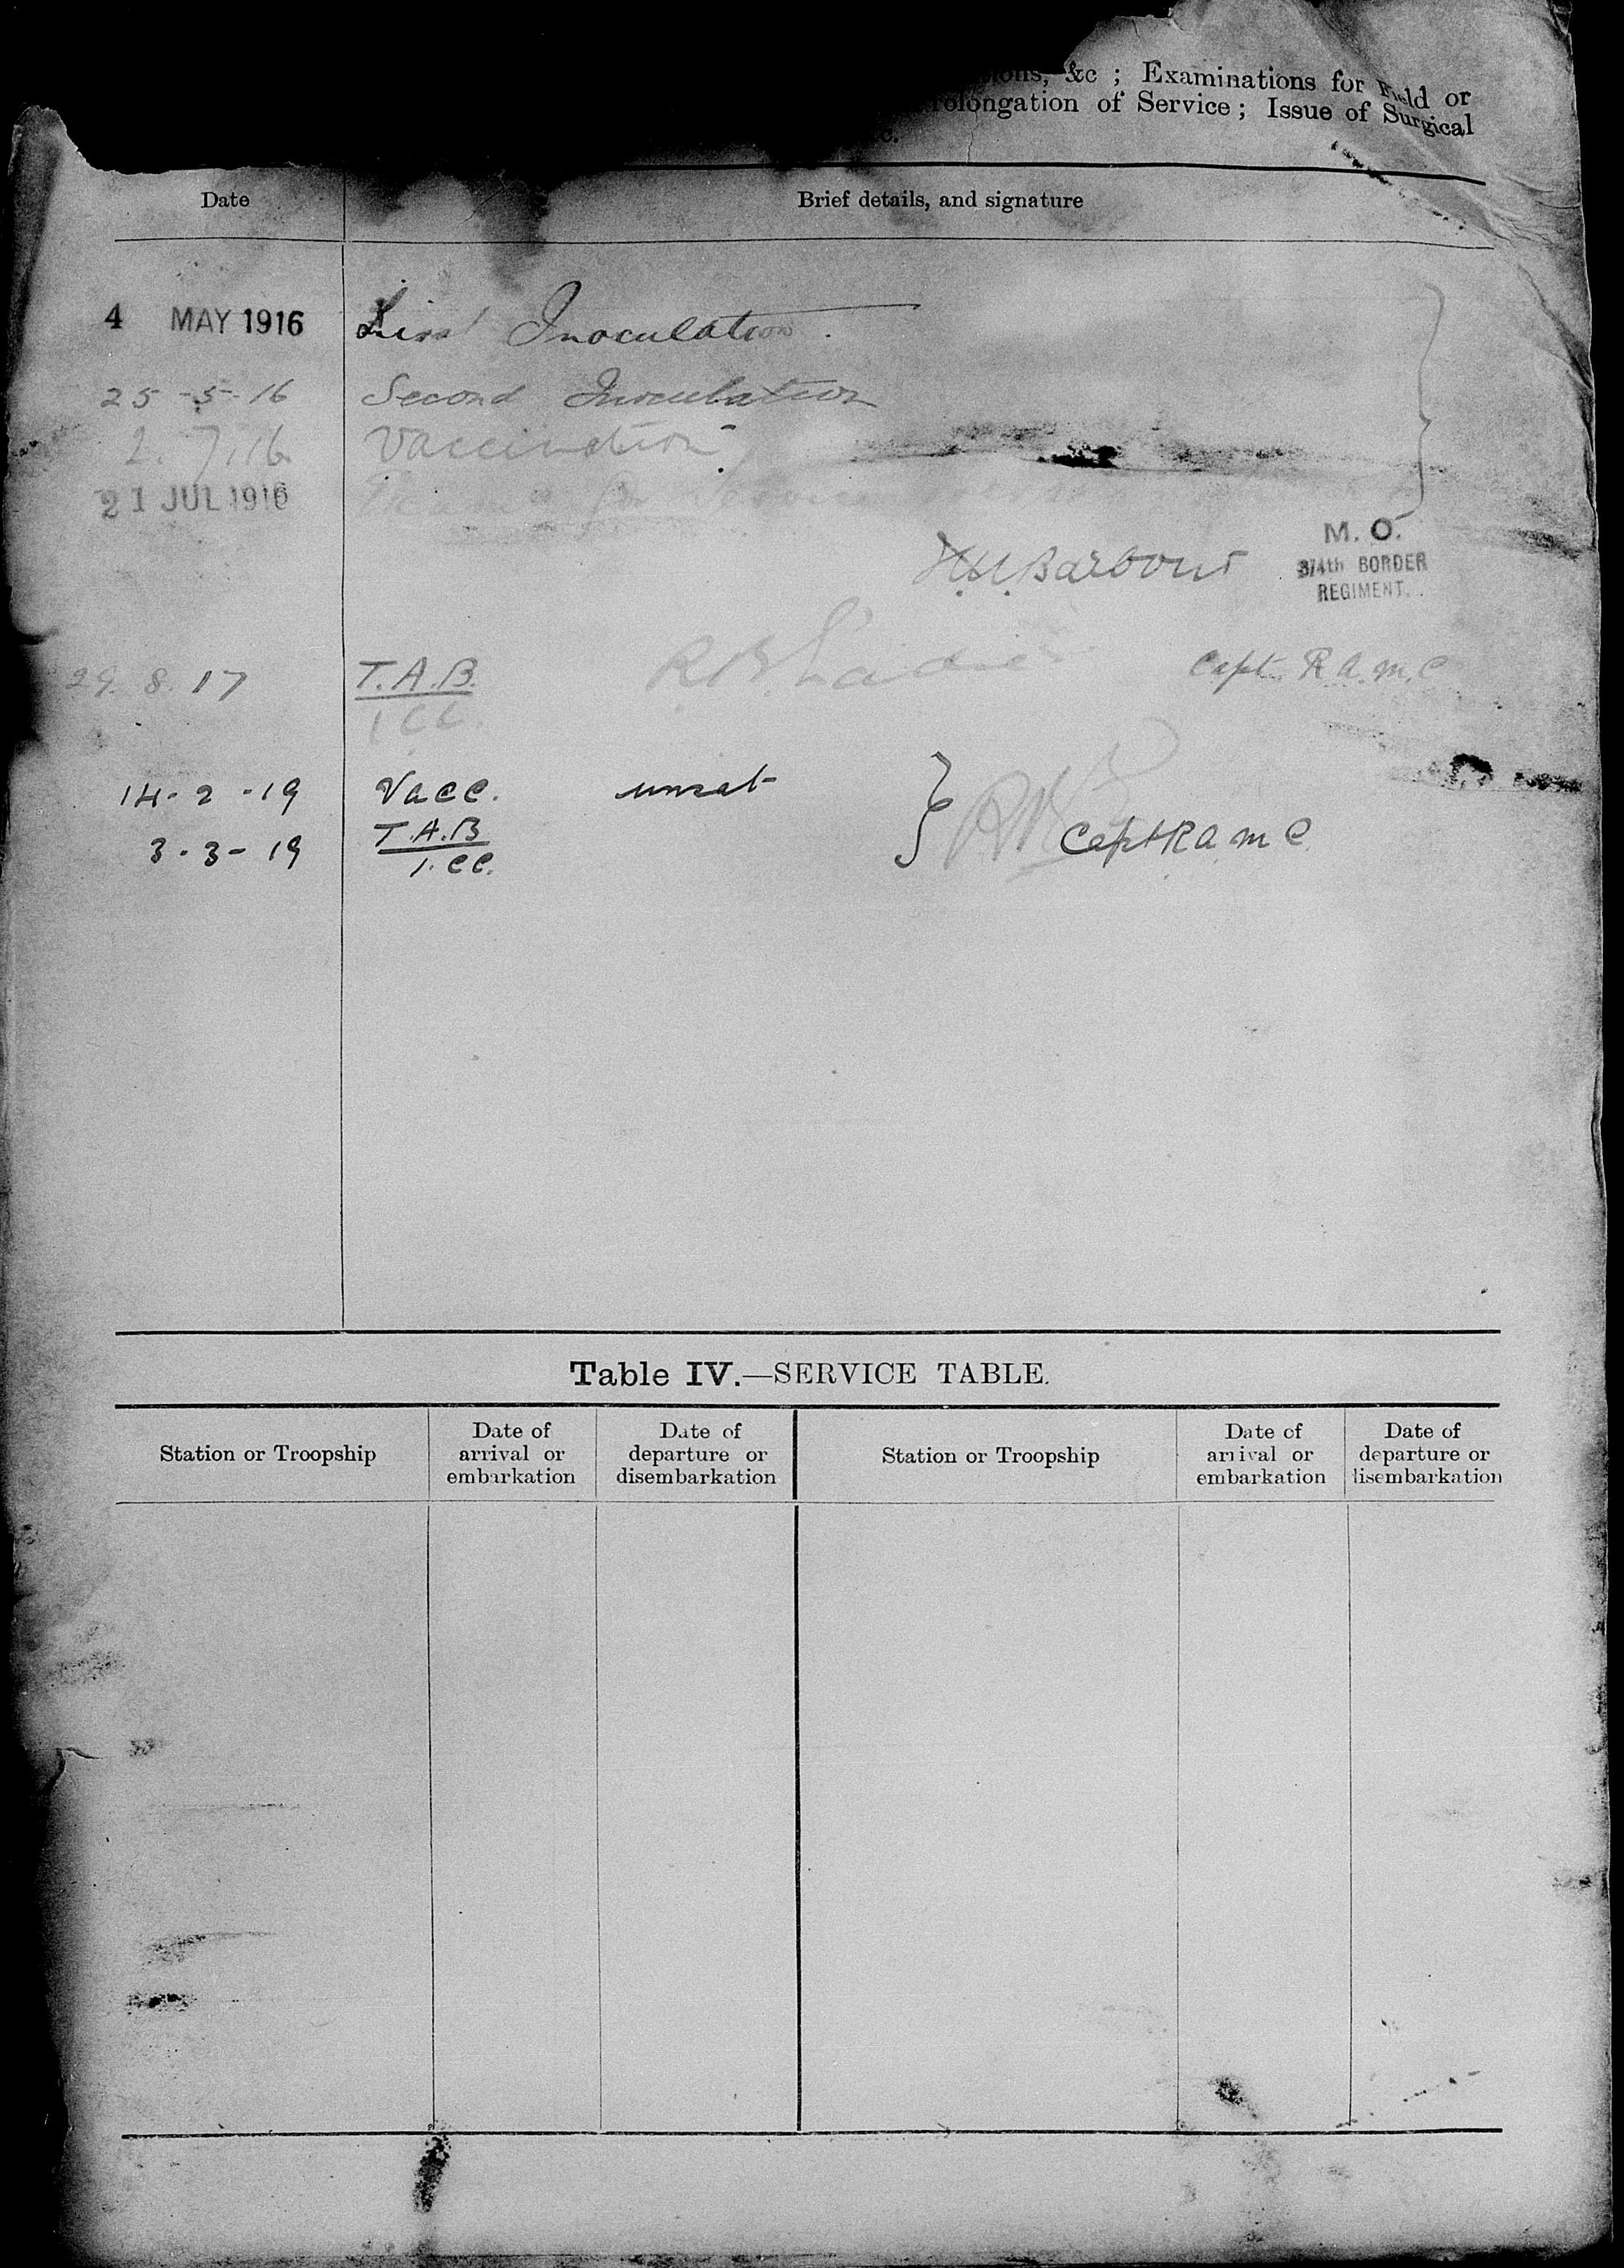 &c ; Examinations for Field or
of Service ; Issue of Surgical
Date
Brief details, and signature
4 MAY 1916 First Inoculation .
25-5-16 Second Inoculation
2.7.16 Vaccination
21 JUL 1916
M. O.
H.H. Barbour
3/4th BORDER
REGIMENT.
29.8.17 T.A.B. Capt. R.A.M.C
1 CC.
14-2-19 Vacc.
3-3-19 T.A.B Capt R A M C
1. CC.
Table IV.—SERVICE TABLE.
Station or Troopship
Date of
arrival or
embarkation
Date of
departure or
disembarkation
Station or Troopship
Date of
arrival or
embarkation
Date of
departure or
disembarkation